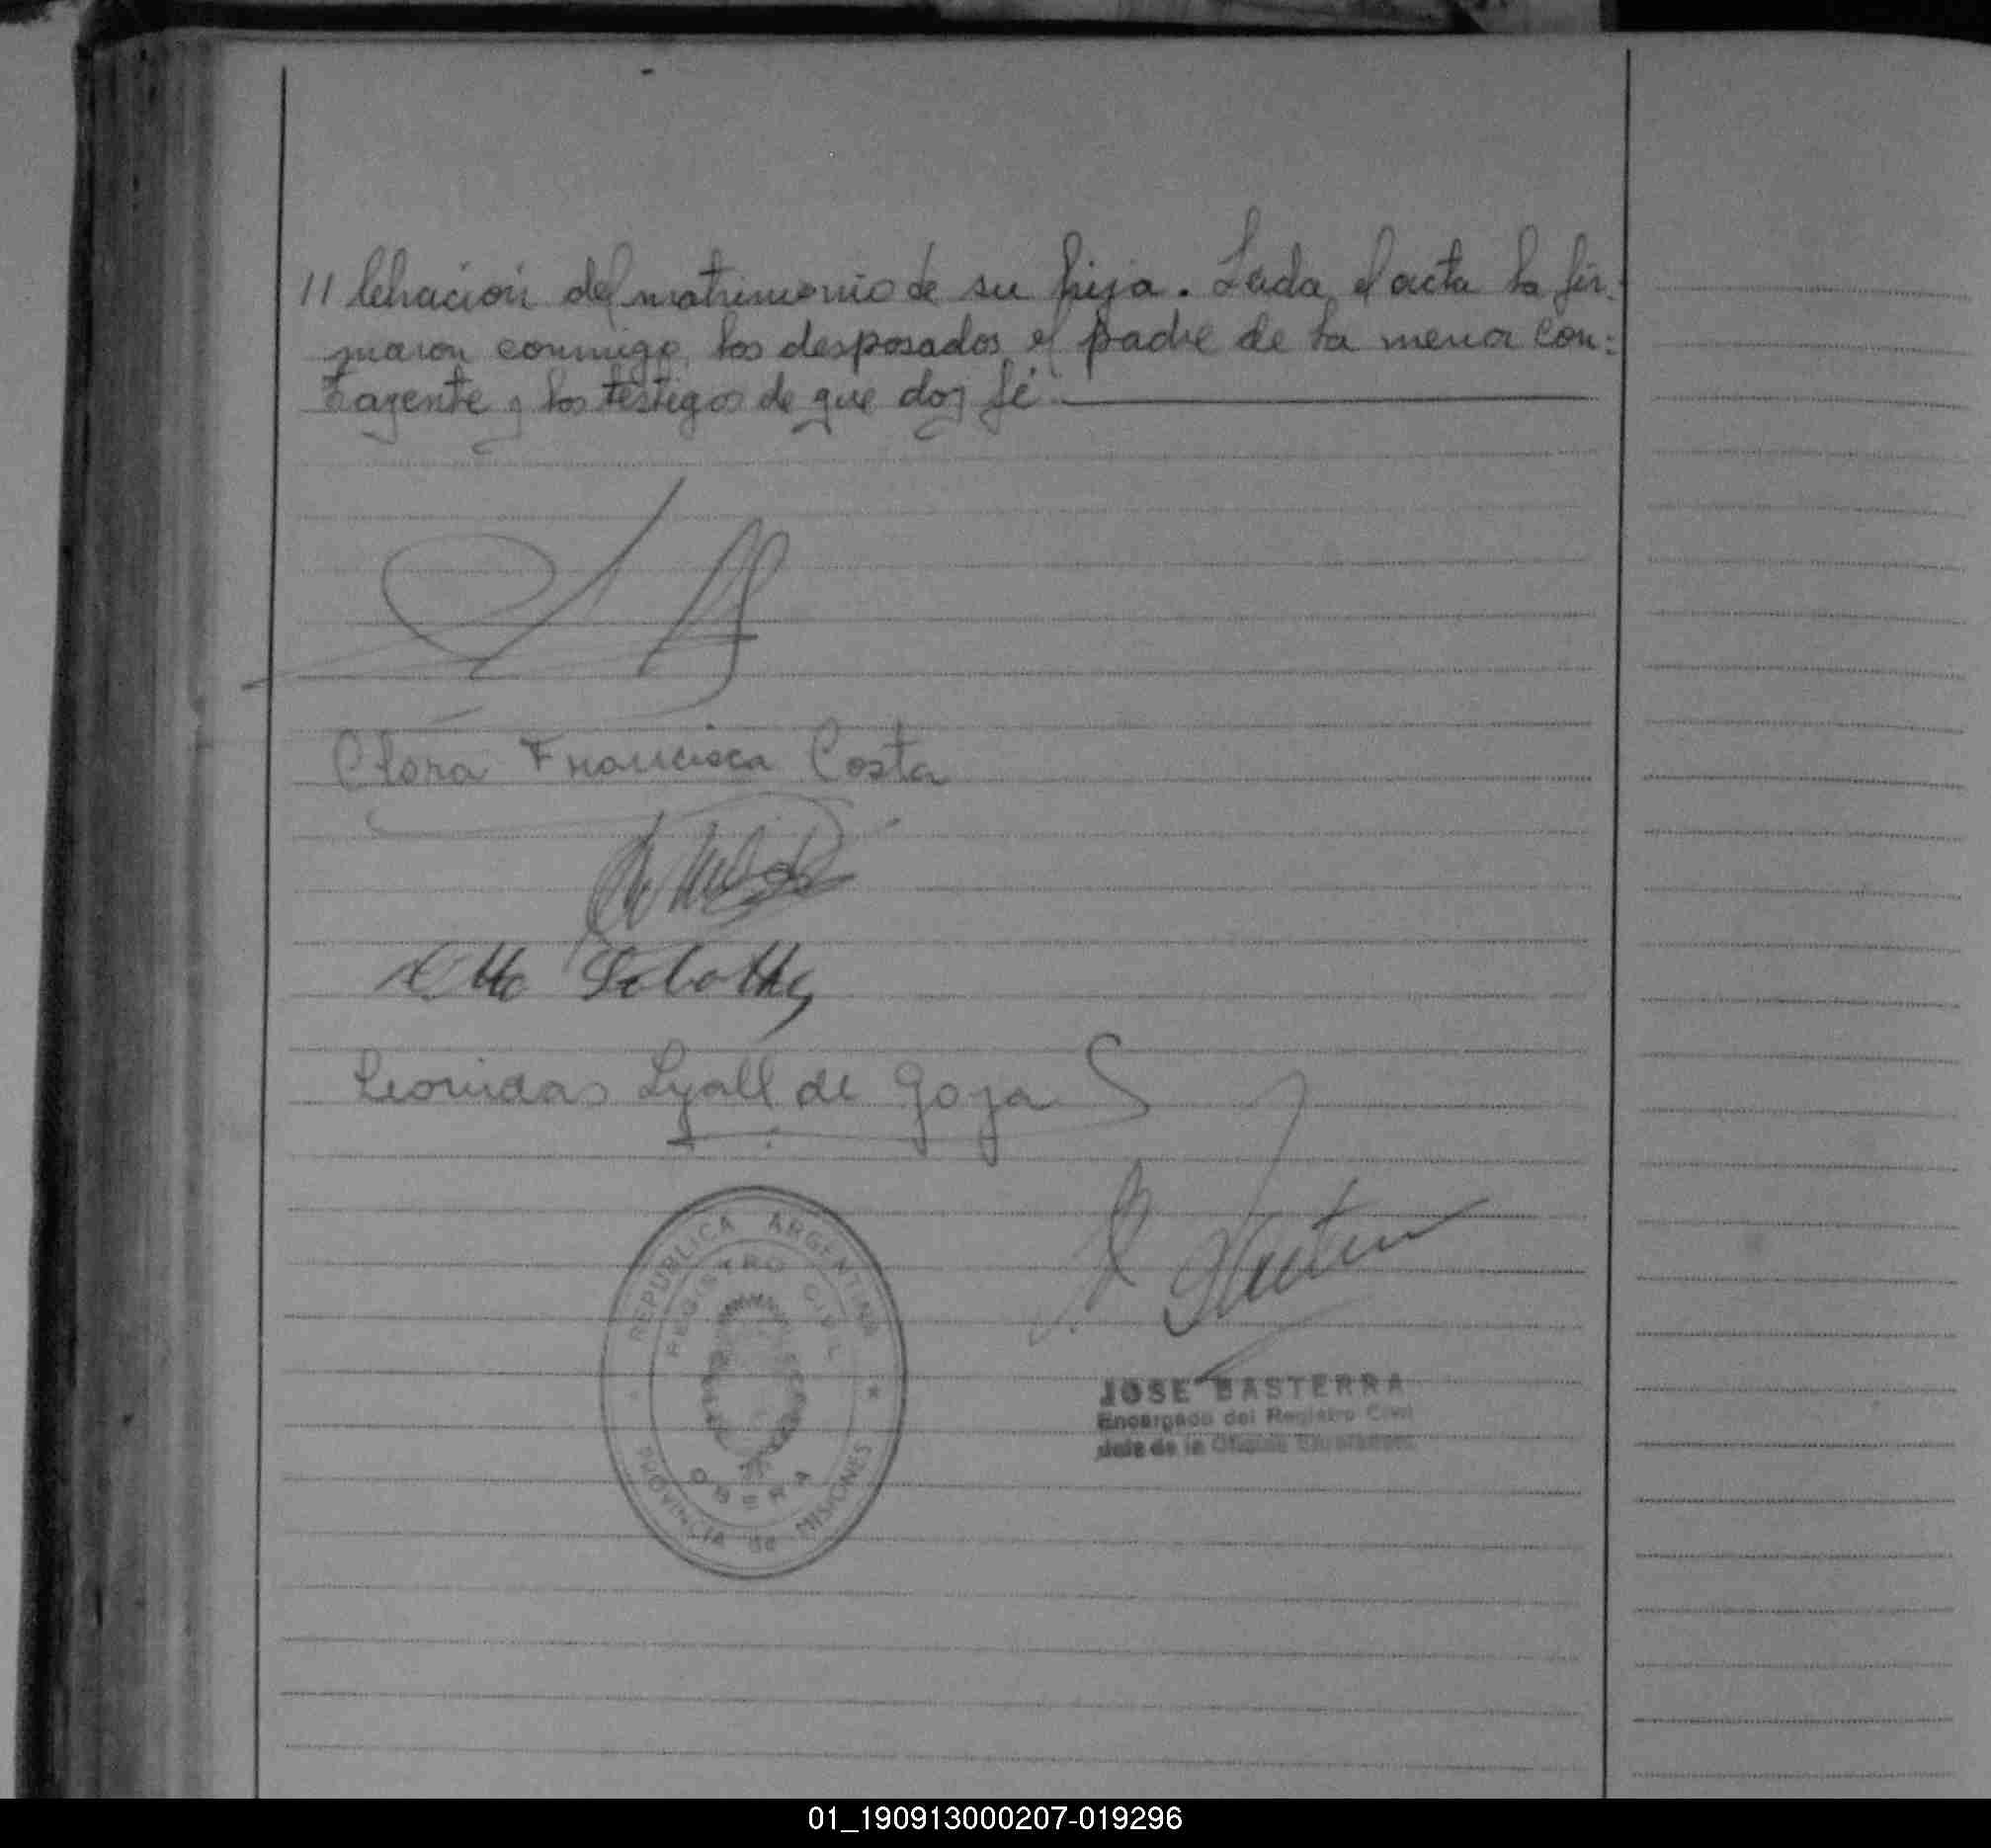 // lebración del matrimonio de su hija. Leida el acta la fir-
maron conmigo los desposados el padre de la menor con-
trayente y los testigos de que doy fé
Clara Francisca Costa
Otto
Leonidas Lyall de Goya
REPUBLICA ARGENTINA
REGISTRO CIVIL
OBERA
PROVINCIA DE MISIONES
JOSE BASTERRA
Encargado del Registro Civil
Jefe de la Oficina Enroladora
01_190913000207-019296